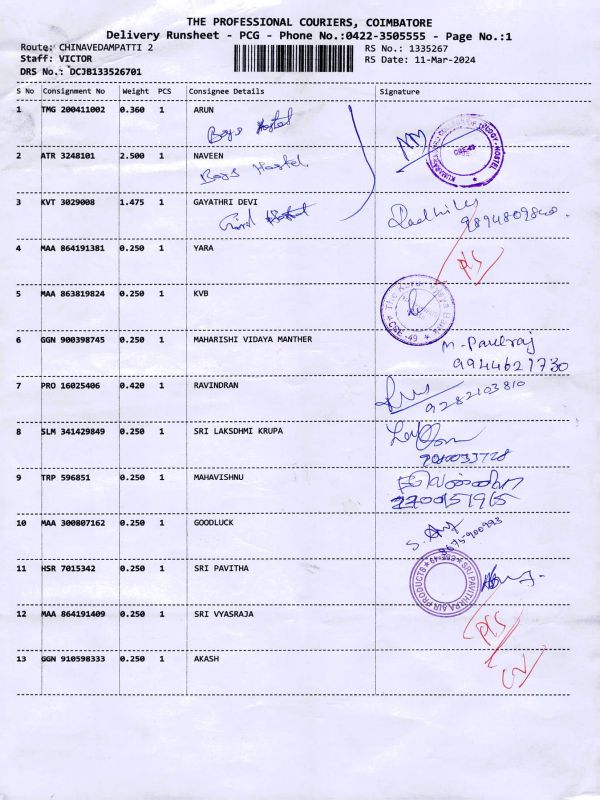 THE PROFESSIONAL COURIERS, COIMBATORE
Delivery Runsheet - PCG - Phone No.:0422-3505555 - Page No.:1
Route: CHINAVEDAMPATTI 2 RS No.: 1335267
Staff: VICTOR RS Date: 11-Mar-2024
DRS No.: DCJB133526701
S No Consignment No Weight PCS Consignee Details Signature
1 TMG 200411002 0.360 1 ARUN
Boys Hostel
2 ATR 3248101 2.500 1 NAVEEN
Boys Hostel
3 KVT 3029008 1.475 1 GAYATHRI DEVI
Hostel
4 MAA 864191381 0.250 1 YARA
5 MAA 863819824 0.250 1 KVB
CBE-49
6 GGN 900398745 0.250 1 MAHARISHI VIDAYA MANTHER
M. Paulraj
9944621730
7 PRO 16025406 0.420 1 RAVINDRAN
9282103810
8 SLM 341429849 0.250 1 SRI LAKSDHMI KRUPA
9 TRP 596851 0.250 1 MAHAVISHNU
10 MAA 300807162 0.250 1 GOODLUCK
11 HSR 7015342 0.250 1 SRI PAVITHA
SRI PAVITHRA AIR PRODUCTS
CBE-49
12 MAA 864191409 0.250 1 SRI VYASRAJA
13 GGN 910598333 0.250 1 AKASH